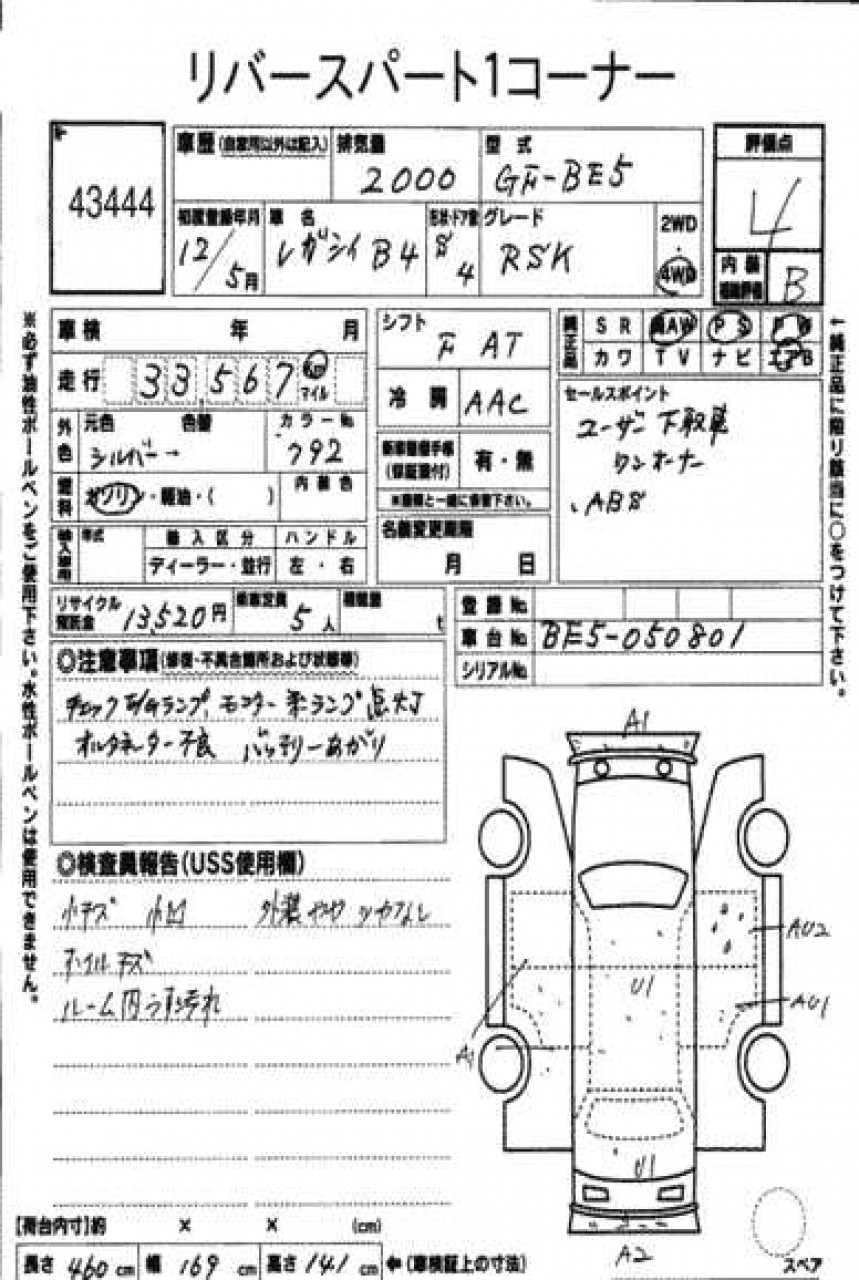 リバースパート1コーナー
43444
車歴 (自家用以外は記入)
排気量 2000
型式 GF-BE5
評価点 4
初度登録年月 12/5月
車名 レガシィ B4
形状・ドア数 S 4
グレード RSK
2WD・4WD
内装 B
車検 年 月
走行 33,567 マイル
シフト F AT
冷房 AAC
純正品 SR AW PS PW
カワ TV ナビ エアB
外色 元色 シルバー 色替
カラーNo. 792
燃料 ガソリン・軽油・( )
内装色
新車整備手帳 (保証書付) 有・無
※書類と一緒に保管下さい。
セールスポイント
ユーザー下取車
ワンオーナー
ABS
輸入車用 年式
輸入区分 ディーラー・並行
ハンドル 左・右
名義変更期限
月 日
リサイクル預託金 13,520円
乗車定員 5人
積載量 t
登録No.
車台No. BE5-050801
シリアルNo.
◎注意事項(修復・不具合箇所および状態等)
チェック ランプ、モニター ランプ点灯
オルタネーター不良 バッテリーあがり
◎検査員報告(USS使用欄)
小キズ 小凹 外装やや ツヤなし
ホイルキズ
ルーム内 汚れ
※必ず油性ボールペンをご使用下さい。水性ボールペンは使用できません。
←純正品に限り該当に○をつけて下さい。
A1
AU2
U1
AU1
A1
U1
A2
スペア
【荷台内寸】約 × × (cm)
長さ 460 cm 幅 169 cm 高さ 141 cm ←(車検証上の寸法)